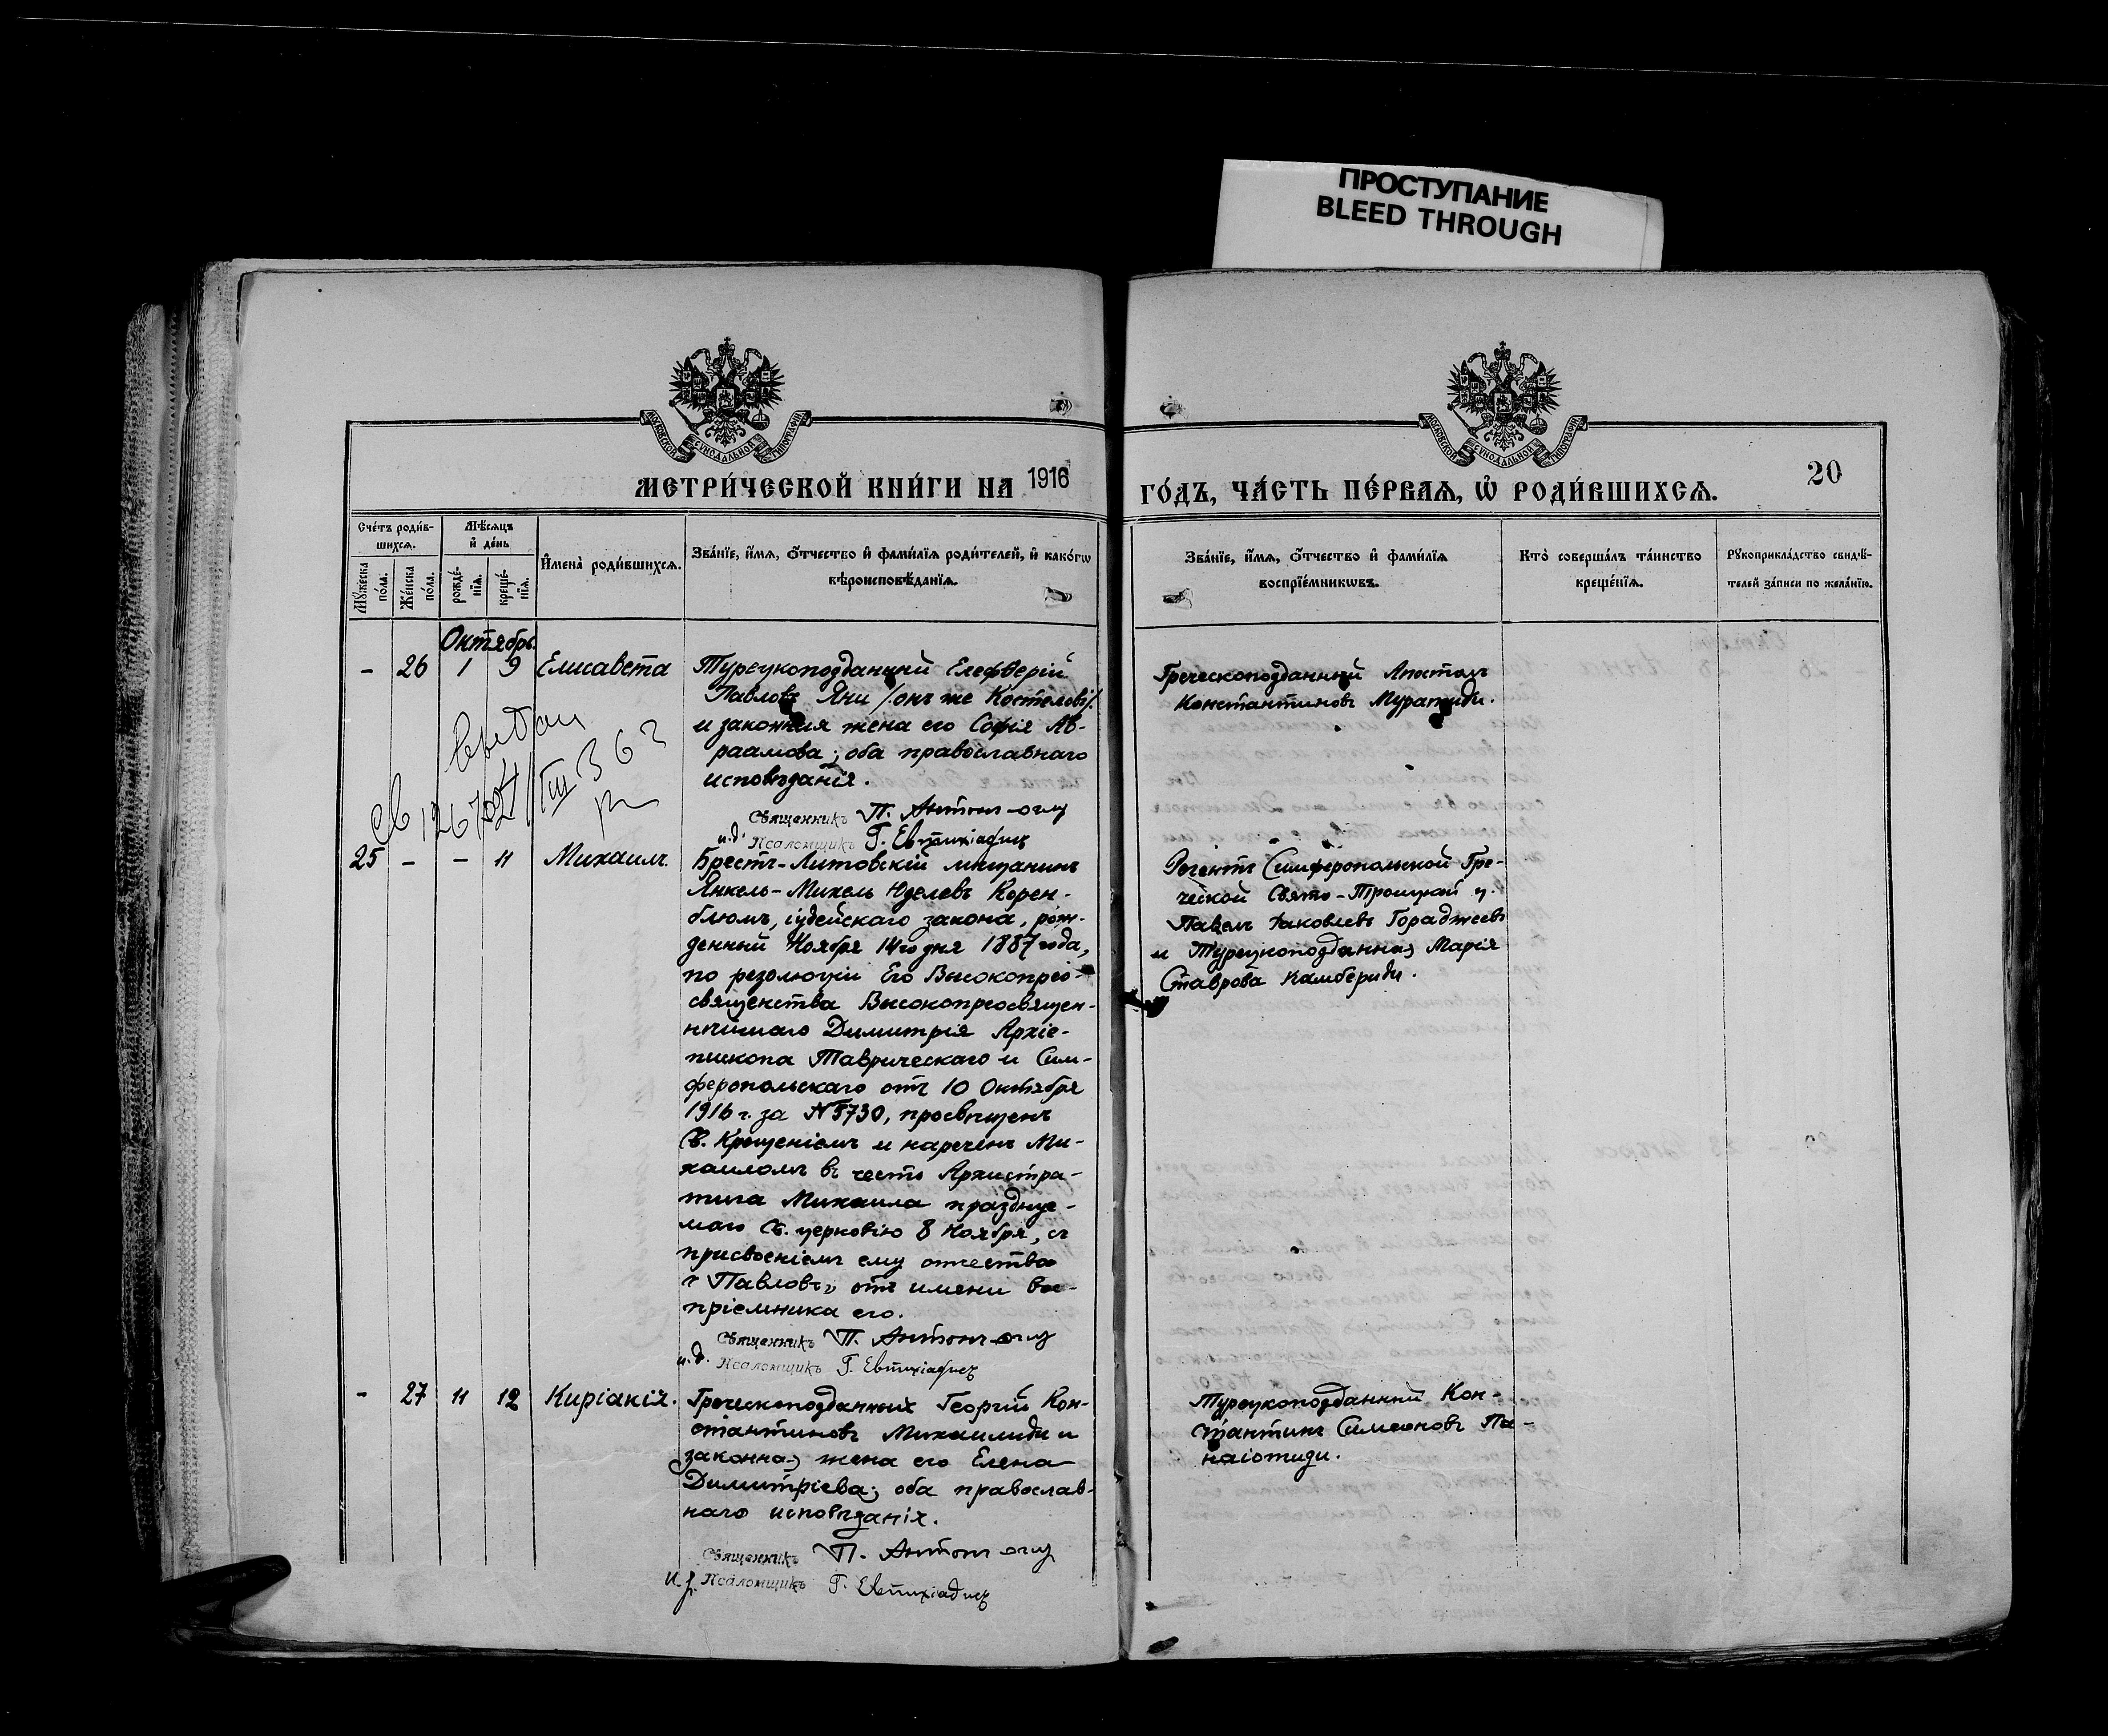 ПРОСТУПАНИЕ
BLEED THROUGH
МОСКОВСКОЙ СѴНОДАЛЬНОЙ ТИПОГРАФІИ
МОСКОВСКОЙ СѴНОДАЛЬНОЙ ТИПОГРАФІИ
МЕТРИ́ЧЕСКОЙ КНИ́ГИ НА 1916
ГО́ДЪ, ЧА́СТЬ ПЕ́РВАѦ, Ѡ҆ РОДИ́ВШИХСѦ.
20
Сче́тъ роди́в-
шихсѧ.
Мꙋ́жеска по́ла.
Же́нска по́ла.
Мѣ́сѧцъ
и҆ де́нь
рожде́-
нїѧ.
креще́-
нїѧ.
И҆мена̀ роди́вшихсѧ.
Зва́нїе, и҆́мѧ, ѻ҆́тчество и҆ фами́лїѧ роди́телей, и҆ како́гѡ
вѣроисповѣ́данїѧ.
Зва́нїе, и҆́мѧ, ѻ҆́тчество и҆ фами́лїѧ
воспрїе́мникѡвъ.
Кто̀ соверша́лъ та́инство
креще́нїѧ.
Рꙋкоприкла́дство свидѣ́-
телей за́писи по жела́нїю.
Октябрь
- 26 1 9 Елисавета
Турецкоподданный Елефѳерій
Павловъ Яни /онъ же Костеловъ/
и законная жена его Софія Ав-
раамова; оба православнаго
исповѣданія.
Священникъ П. Антонъ-оглу
и.д. Псаломщикъ Г. Евтихіадисъ
Греческоподданный Апостолъ
Константиновъ Муратиди.
25 - - 11 Михаилъ.
Брестъ-Литовскій мѣщанинъ
Янкель-Михель Юделевъ Корен-
блюмъ, іудейскаго закона, рож-
денный Ноября 14го дня 1887 года,
по резолюціи Его Высокопрео-
священства Высокопреосвящен-
нѣйшаго Димитрія Архіе-
пископа Таврическаго и Сим-
феропольскаго отъ 10 Октября
1916 г. за № 5730, просвѣщенъ
Св. Крещеніемъ и нареченъ Ми-
хаиломъ въ честь Архистра-
тига Михаила празднуе-
маго Св. церковію 8 Ноября, съ
присвоеніемъ ему отчества
"Павловъ" отъ имени вос-
пріемника его.
Священникъ П. Антонъ-оглу
и.д. Псаломщикъ Г. Евтихіадисъ
Регентъ Симферопольской Гре-
ческой Свято-Троицкой ц.
Павелъ Іаковлевъ Гораджеевъ
и Турецкоподданная Марія
Ставрова Камбериди.
- 27 11 12 Киріакія.
Греческоподданныхъ Георгій Кон-
стантиновъ Михаилиди и
законная жена его Елена
Димитріева; оба православ-
наго исповѣданія.
Священникъ П. Антонъ-оглу
и.д. Псаломщикъ Г. Евтихіадисъ
Турецкоподданный Кон-
стантинъ Симеоновъ Па-
наіотиди.